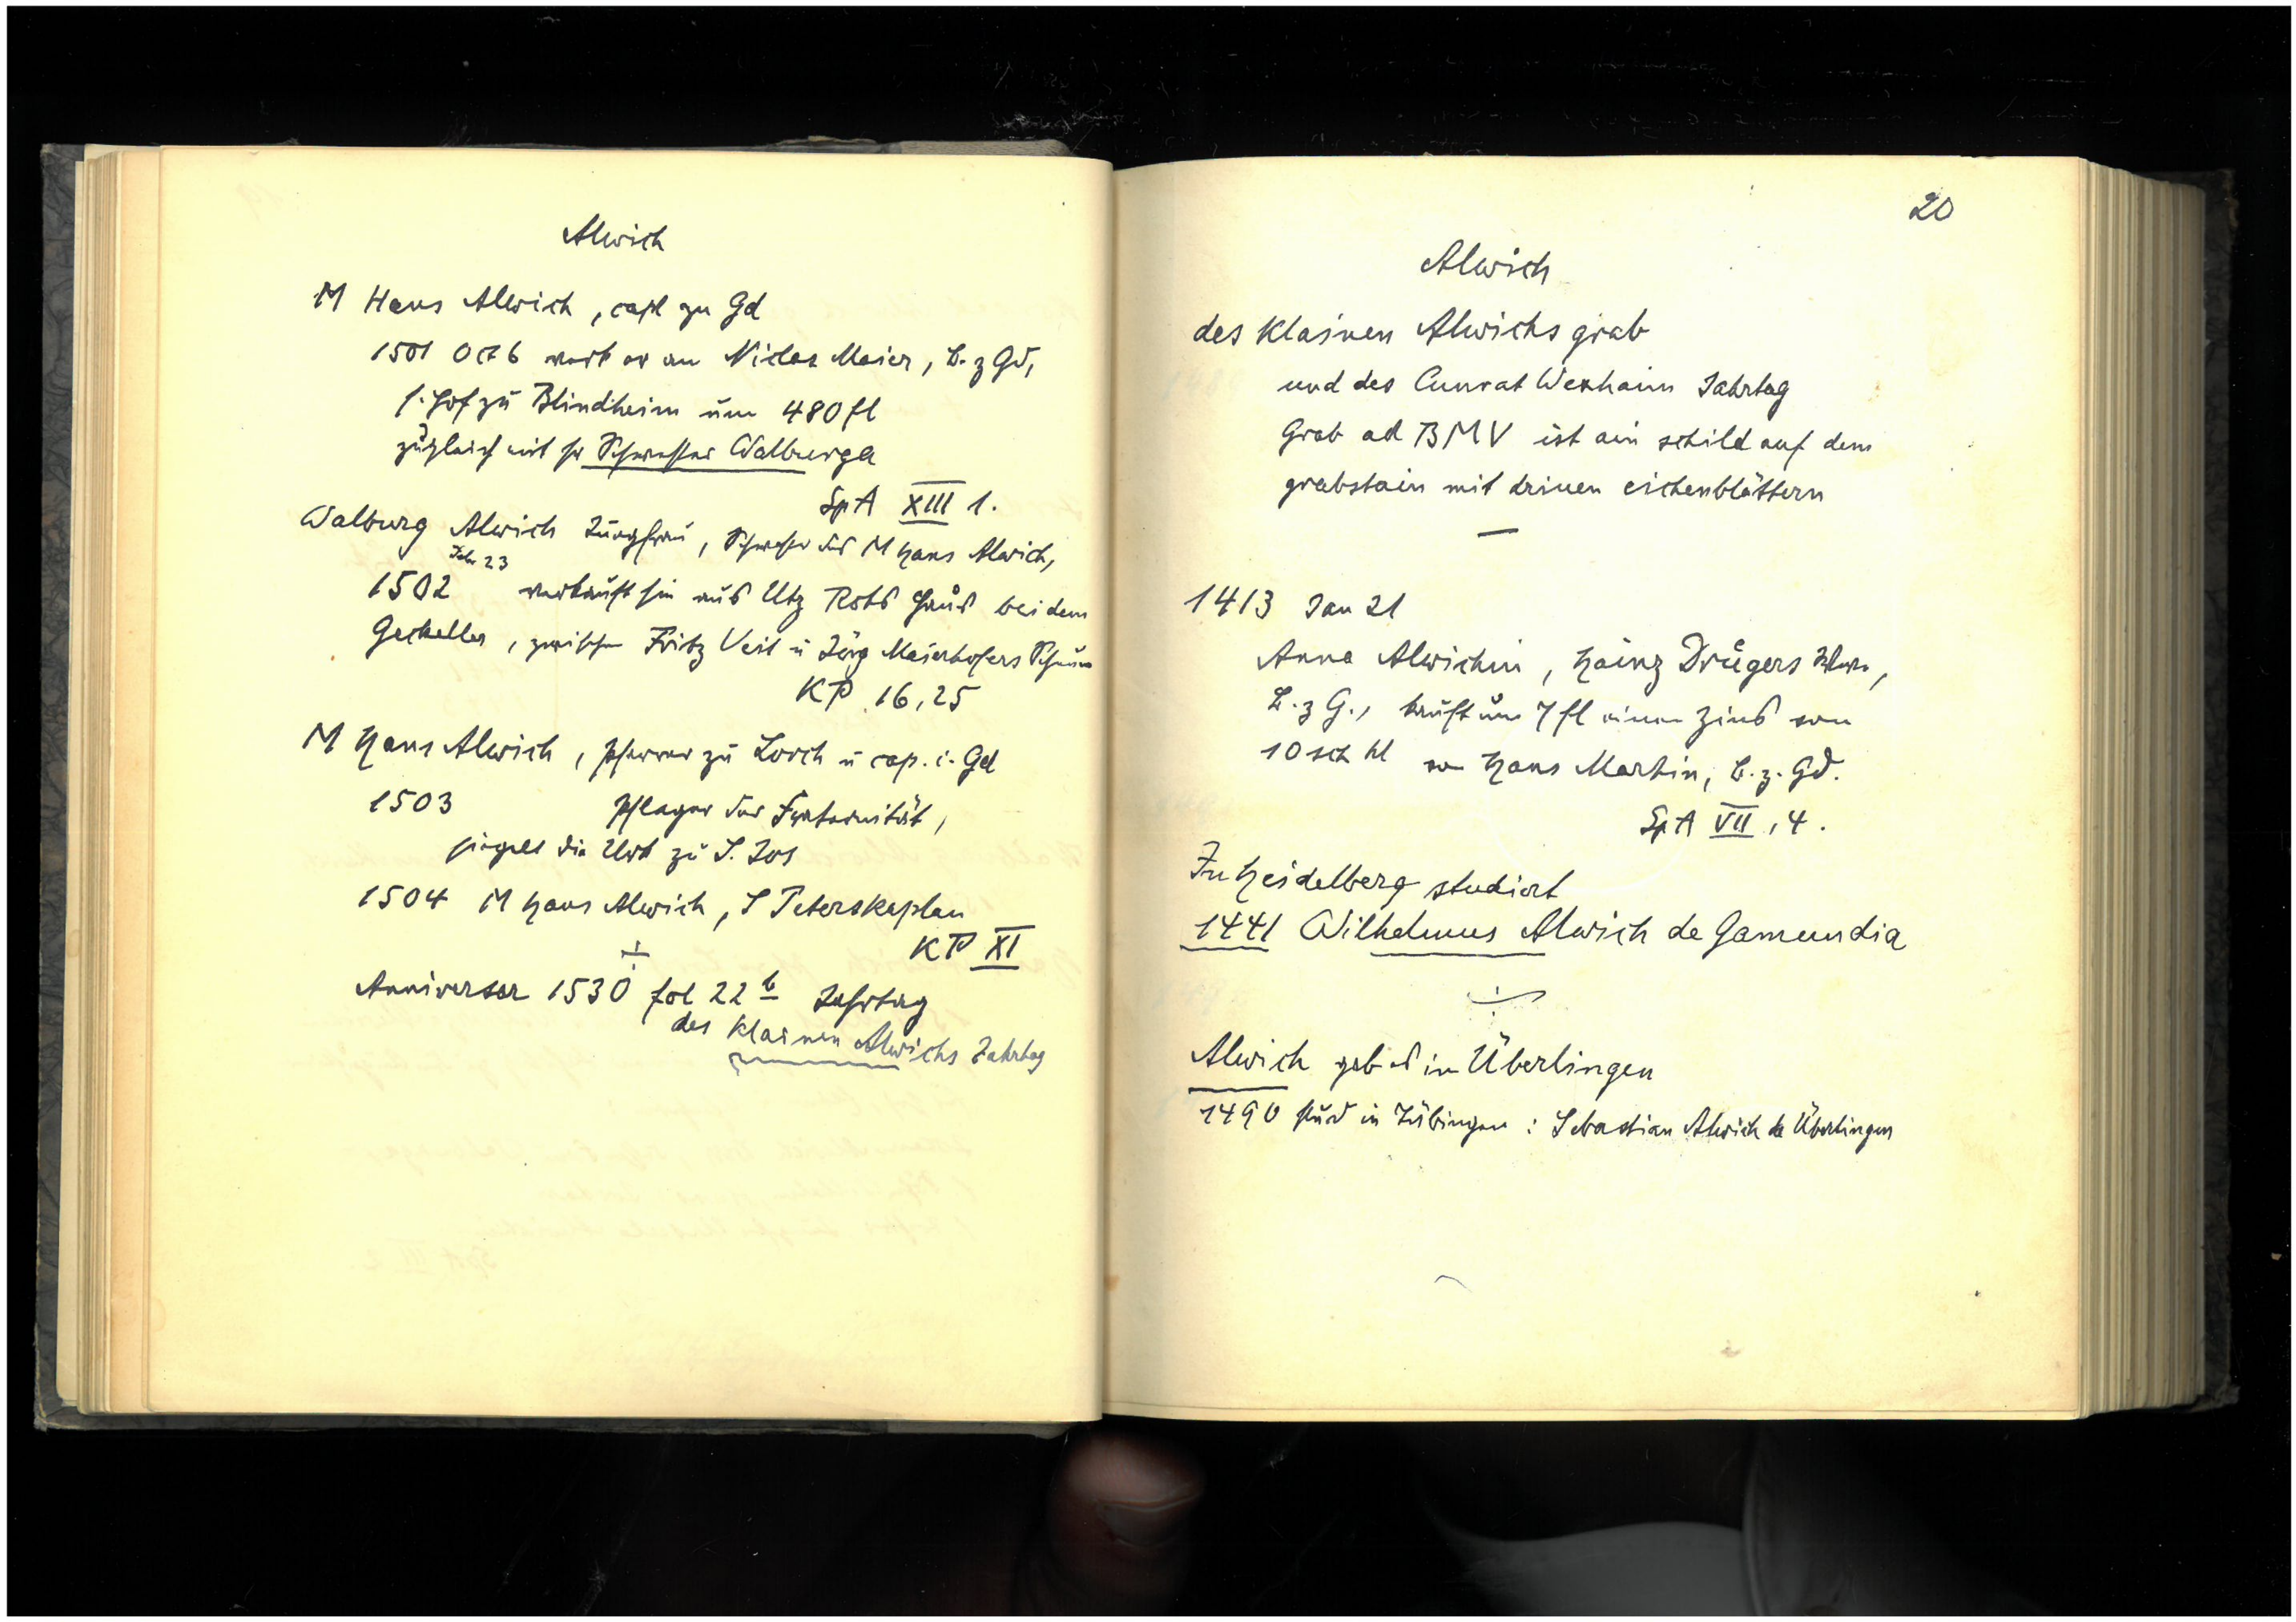 Alwich
M Hans Alwich, capl zu Gd
1501 Oct 6 verk er an Niclas Maier, B. z Gd,
s. Hof zu Blindheim um 480 fl
zugleich mit sr Schwester Walburga
SpA XIII 1.
Walburg Alwich Jungfrau, Schwester des M Hans Alwich,
1502 23 verkauft sie aus Utz Rots Haus bei dem
Geckeller, zwischen Fritz Veit u Jörg Maierhofers Scheuer
KP 16,25
M Hans Alwich, Pfarrer zu Lorch u cap. i. Gd
1503 Pfleger der Fraternität,
siegelt die Urk zu S. Jos
1504 M Hans Alwich, S Peterskaplan
KP XI
Anniversar 1530 fol 22 b Jahrtag
des klainen Alwichs Jahrtag
20
Alwich
des klainen Alwichs grab
und des Cunrat Wexhaim Jahrtag
Grab ad BMV ist ain schild auf dem
grabstain mit drinen eichenblättern
1413 Jan 21
Anna Alwichin, Hainz Drügers Witwe,
B. z G., kauft um 7 fl einen Zins von
10 sch hl von Hans Martin, B. z. Gd.
SpA VII, 4.
In Heidelberg studiert
1441 Wilhelmus Alwich de Gamundia
Alwich gab es in Überlingen
1490 stud in Tübingen: Sebastian Alwich de Überlingen